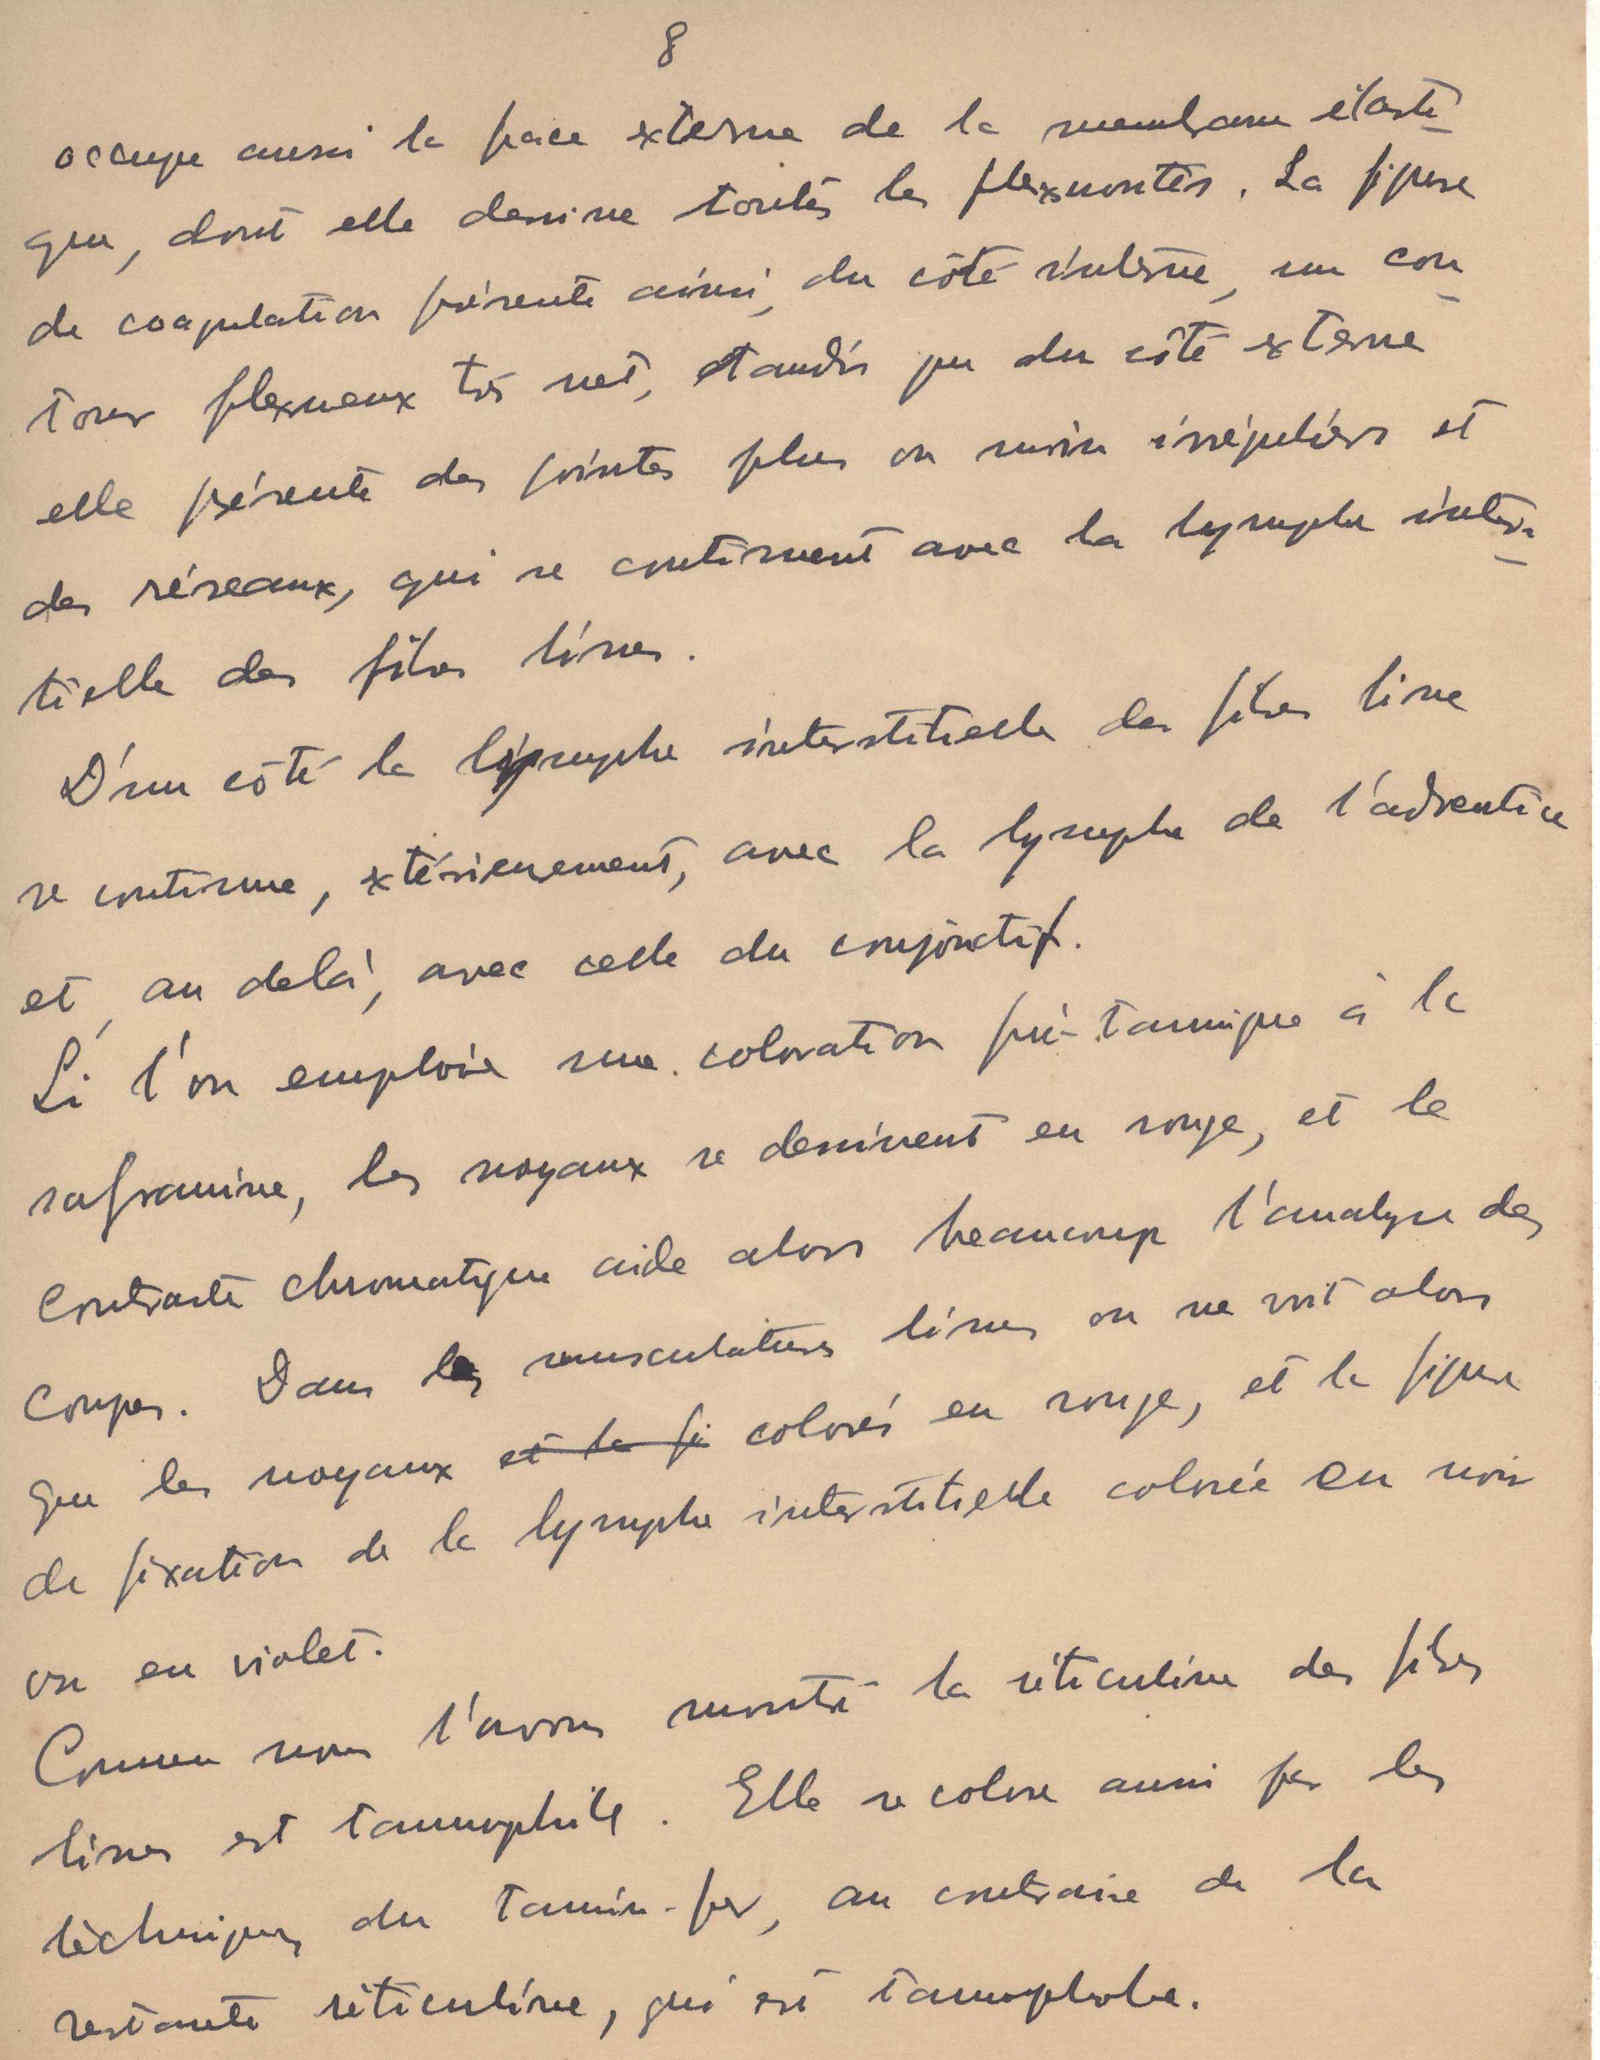 8
occupe aussi la face externe de la membrane élasti-
que, dont elle dessine toutes les flexuosités. La figure
de coagulation présente ainsi, du côté interne, un con-
tour flexueux très net, tandis que du côté externe
elle présente des pointes plus ou moins irréguliers et
des réseaux, qui se continuent avec la lymphe inters-
titielle des fibres lisses.
D'un côté la lymphe interstitielle des fibres lisse
se continue, extérieurement, avec la lymphe de l'adventice
et, au delà, avec celle du conjonctif.
Si l'on emploie une coloration pré-tannique à la
safranine, les noyaux se dessinent en rouge, et le
contraste chromatique aide alors beaucoup l'analyse des
coupes. Dans les musculatures lisses on ne voit alors
que les noyaux et la fi colorés en rouge, et la figure
de fixation de la lymphe interstitielle colorée en noir
ou en violet.
Comme nous l'avons montré la réticuline des fibres
lisses est tannophile. Elle se colore aussi par les
techniques du tannin-fer, au contraire de la
restante réticuline, qui est tannophobe.